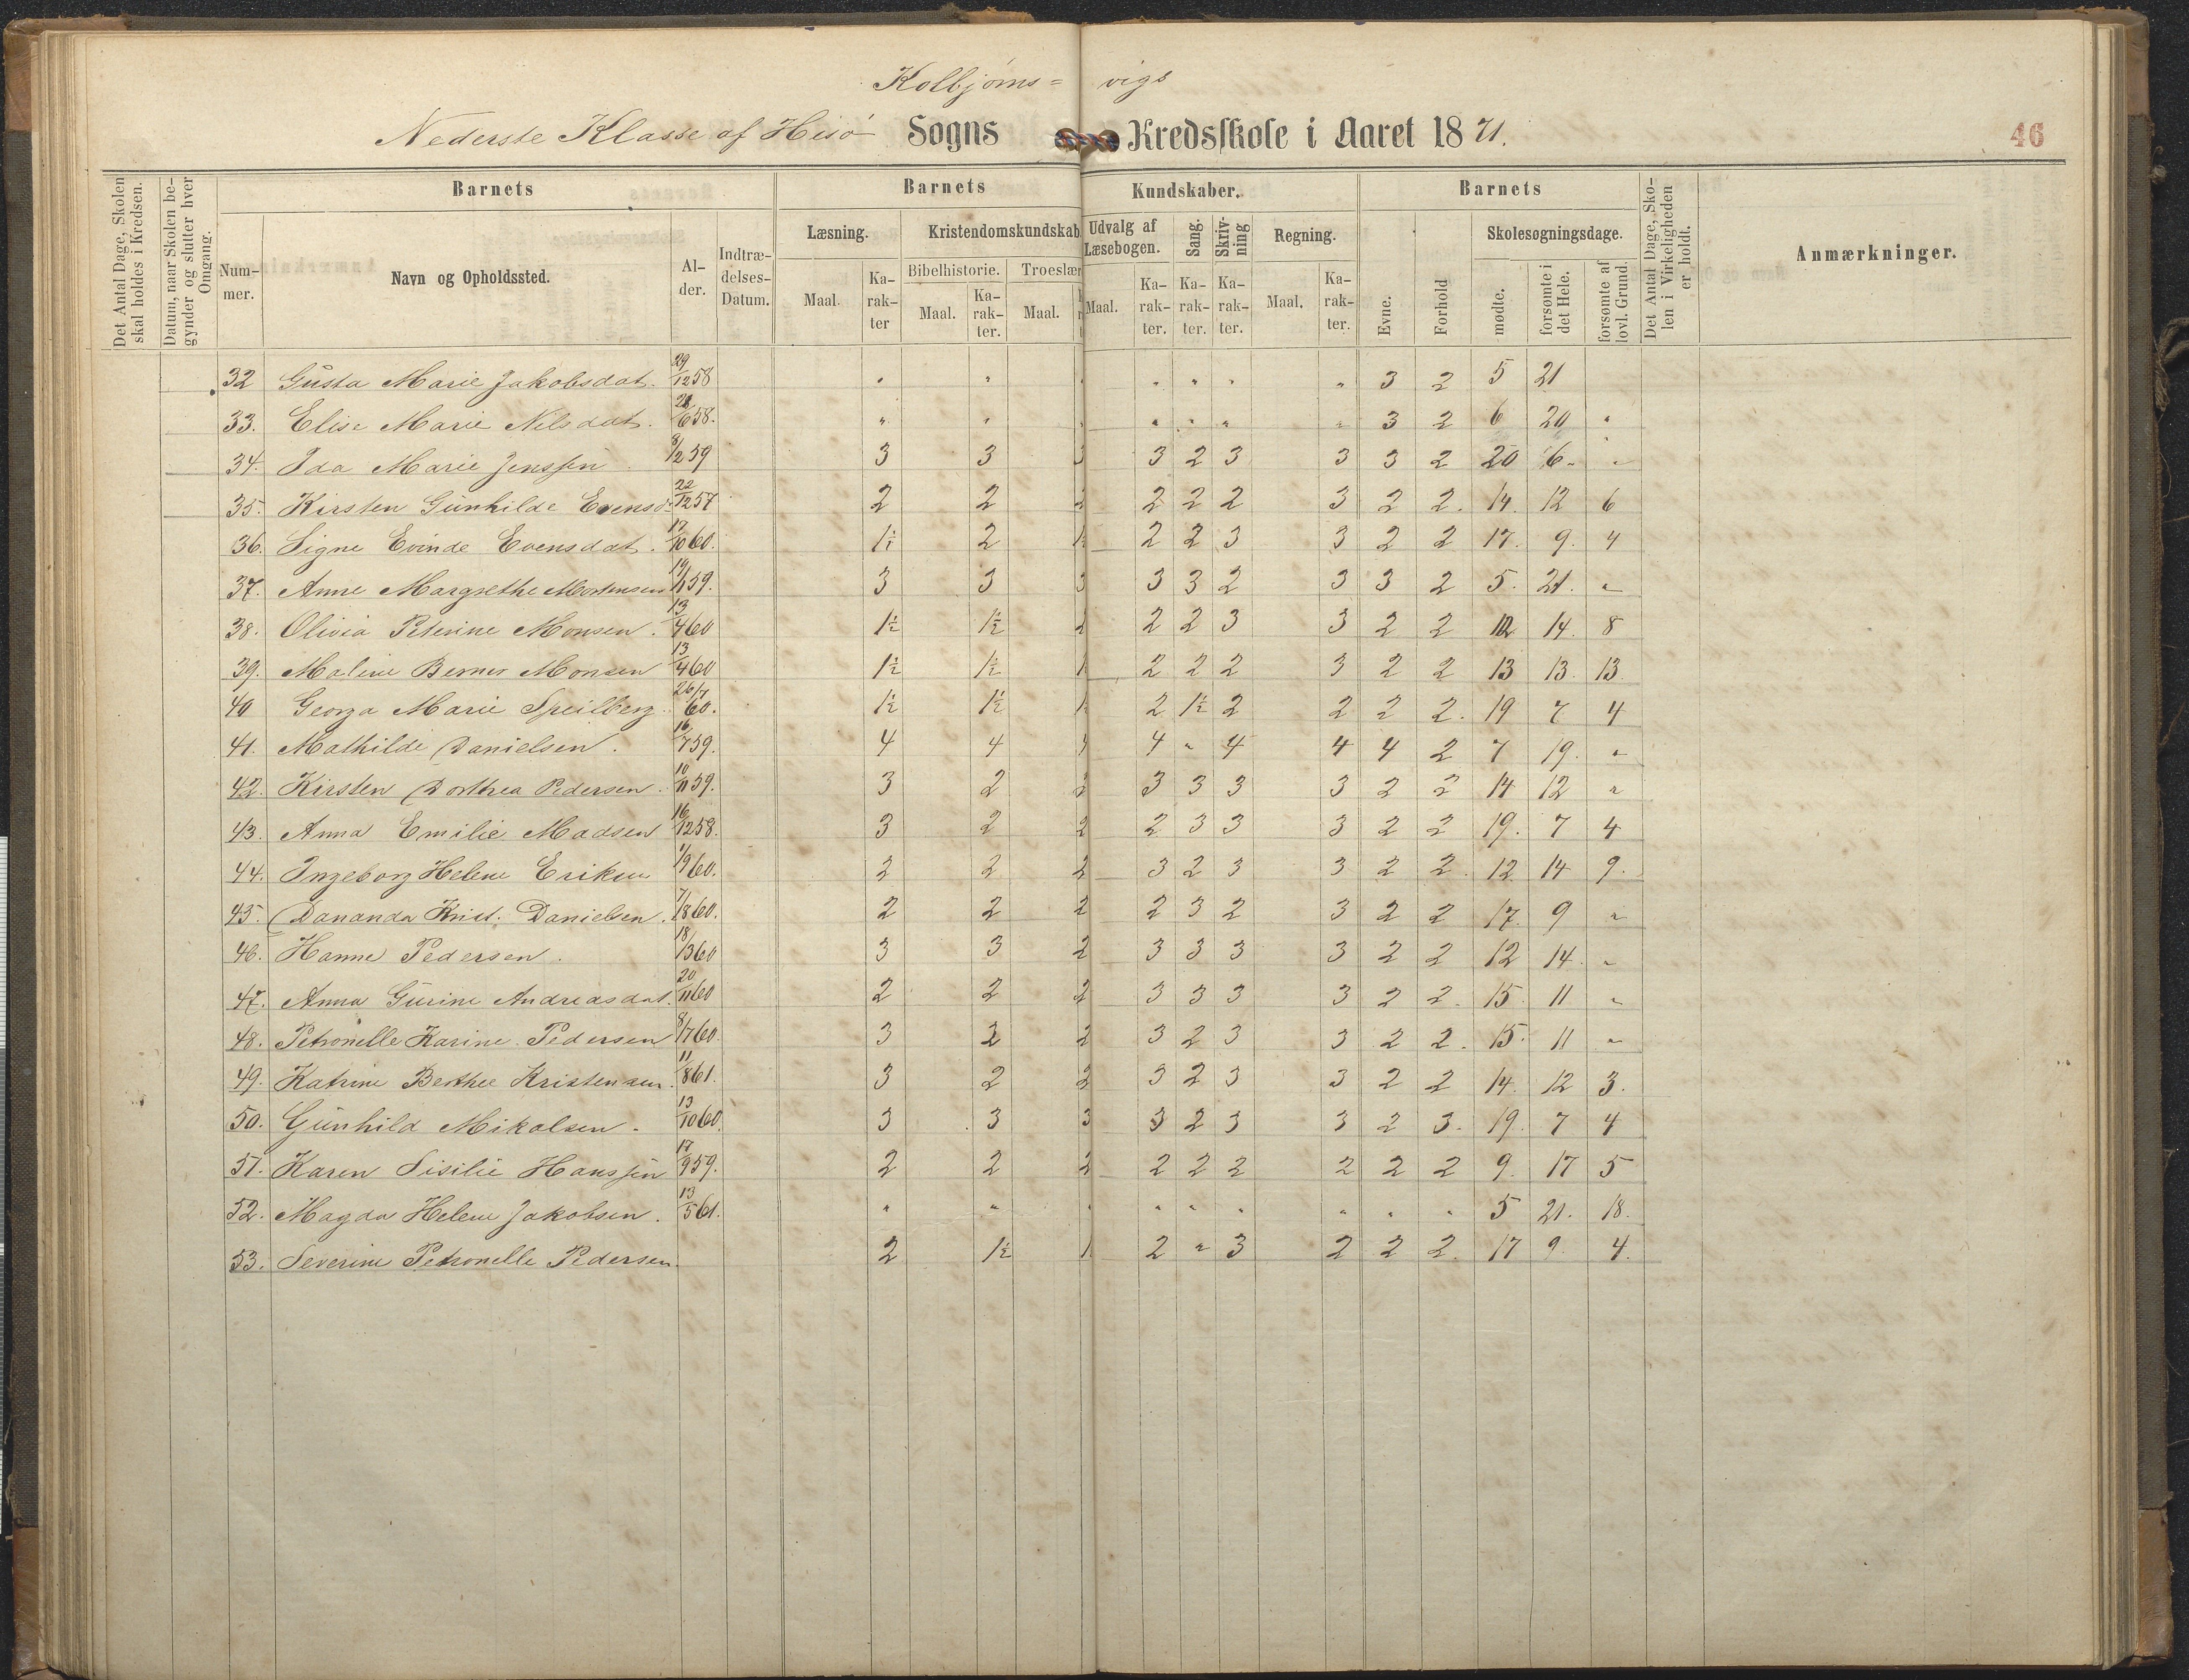 Kolbjörns= vigs
Nederste Klasse af Hisö Sogns Kredsskole i Aaret 1871.
46
Det Antal Dage, Skolen skal holdes i Kredsen.
Datum, naar Skolen begynder og slutter hver Omgang.
Barnets Barnets Kundskaber. Barnets
Det Antal Dage, Skolen i Virkeligheden er holdt.
Anmærkninger.
Nummer. Navn og Opholdssted. Alder. Indtrædelses-Datum.
Læsning. Kristendomskundskab. Udvalg af Læsebogen. Sang. Skrivning Regning. Evne. Forhold Skolesøgningsdage.
Bibelhistorie. Troeslær
Maal. Karakter Maal. Karakter. Maal. Maal. Karakter. Karakter. Karakter. Maal. Karakter. mødte. forsømte i det Hele. forsømte af lovl. Grund.
32 Gusta Marie Jakobsdat. 29/12 58 " " " " " " 3 2 5 21
33. Elise Marie Nilsdat. 21/6 58. " " " " " " 3 2 6 20 "
34. Ida Marie Jenssen 8/2 59 3 3 3 3 2 3 3 3 2 20 6 "
35. Kirsten Gunhilde Evensd. 22/12 57 2 2 2 2 2 2 3 2 2. 14. 12 6
36. Signe Evinde Evensdat. 17/10 60. 1½ 2 1½ 2 2 3 3 2 2 17. 9. 4
37. Anne Margrethe Mortensen 19/11 59. 3 3 3 3 3 2 3 3 2 5. 21. "
38. Olivia Peterine Monsen. 13/4 60 1½ 1½ 2 2 2 3 3 2 2 12 14. 8
39. Maline Berner Monsen 13/4 60 1½ 1½ 1 2 2 2 3 2 2 13 13. 13
40 Georga Marie Speilberg 26/7 60. 1½ 1½ 1½ 2 1½ 2 2 2 2. 19 7 4
41. Mathilde Danielsen. 16/7 59. 4 4 4 4 " 4 4 4 2 7 19. "
42. Kirsten Dorthea Pedersen. 10/11 59. 3 2 2 3 3 3 3 2 2 14 12 "
43. Anna Emilie Madsen 16/12 58. 3 2 2 2 3 3 3 2 2 19. 7 4
44. Ingeborg Helene Eriksen 1/9 60. 2 2 2 3 2 3 3 2 2. 12 14 9.
45. Dananda Krist. Danielsen. 7/8 60. 2 2 2 2 3 2 3 2 2 17. 9 "
46. Hanne Pedersen. 18/3 60 3 3 2 3 3 3 3 2 2 12 14. "
47. Anna Gurine Andreasdat. 20/11 60 2 2 2 3 3 3 3 2 2. 15 11 "
48. Petronelle Karine Pedersen 8/7 60. 3 2 2 3 2 3 3 2 2. 15. 11 "
49. Katrine Berthee Kristensen. 11/8 61. 3 2 2 3 2 3 3 2 2 14. 12 3.
50. Gunhild Mikalsen. 13/10 60. 3 3 3 3 2 3 3 2 3. 19. 7 4
51. Karen Sisilie Hanssen 17/9 59. 2 2 2 2 2 2 2 2 2 9. 17 5
52. Magda Helene Jakobsen. 13/5 61. " " " " " " " " " 5 21. 18.
53. Severine Petronelle Pedersen. 2 1½ 1 2 " 3 2 2 2. 17 9. 4.